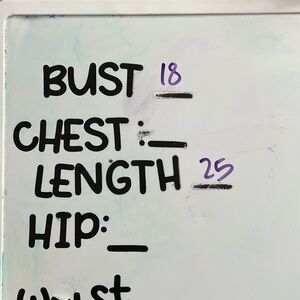 BUST 18
CHEST:_
LENGTH 25
HIP:_
Waist